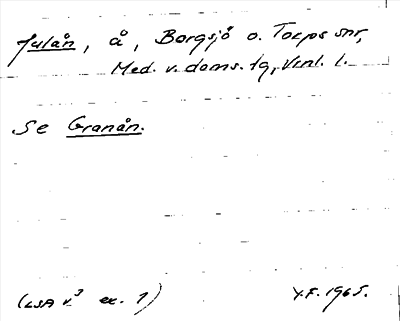 Julån, å, Borgsjö o. Torps snr,
Med. v. doms. tg, Vnl. l.
Se Granån.
(LSA v3 ex. 1) Y.F. 1965.